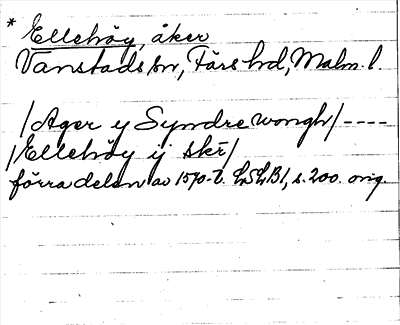 * Ellehöy, åker
Vanstads sn, Färs hd, Malm. l.
/Ager y Syndre wongh/ ----
/Ellehöy ij skr/
förra delen av 1570-t. LSLB1, s. 200. orig.